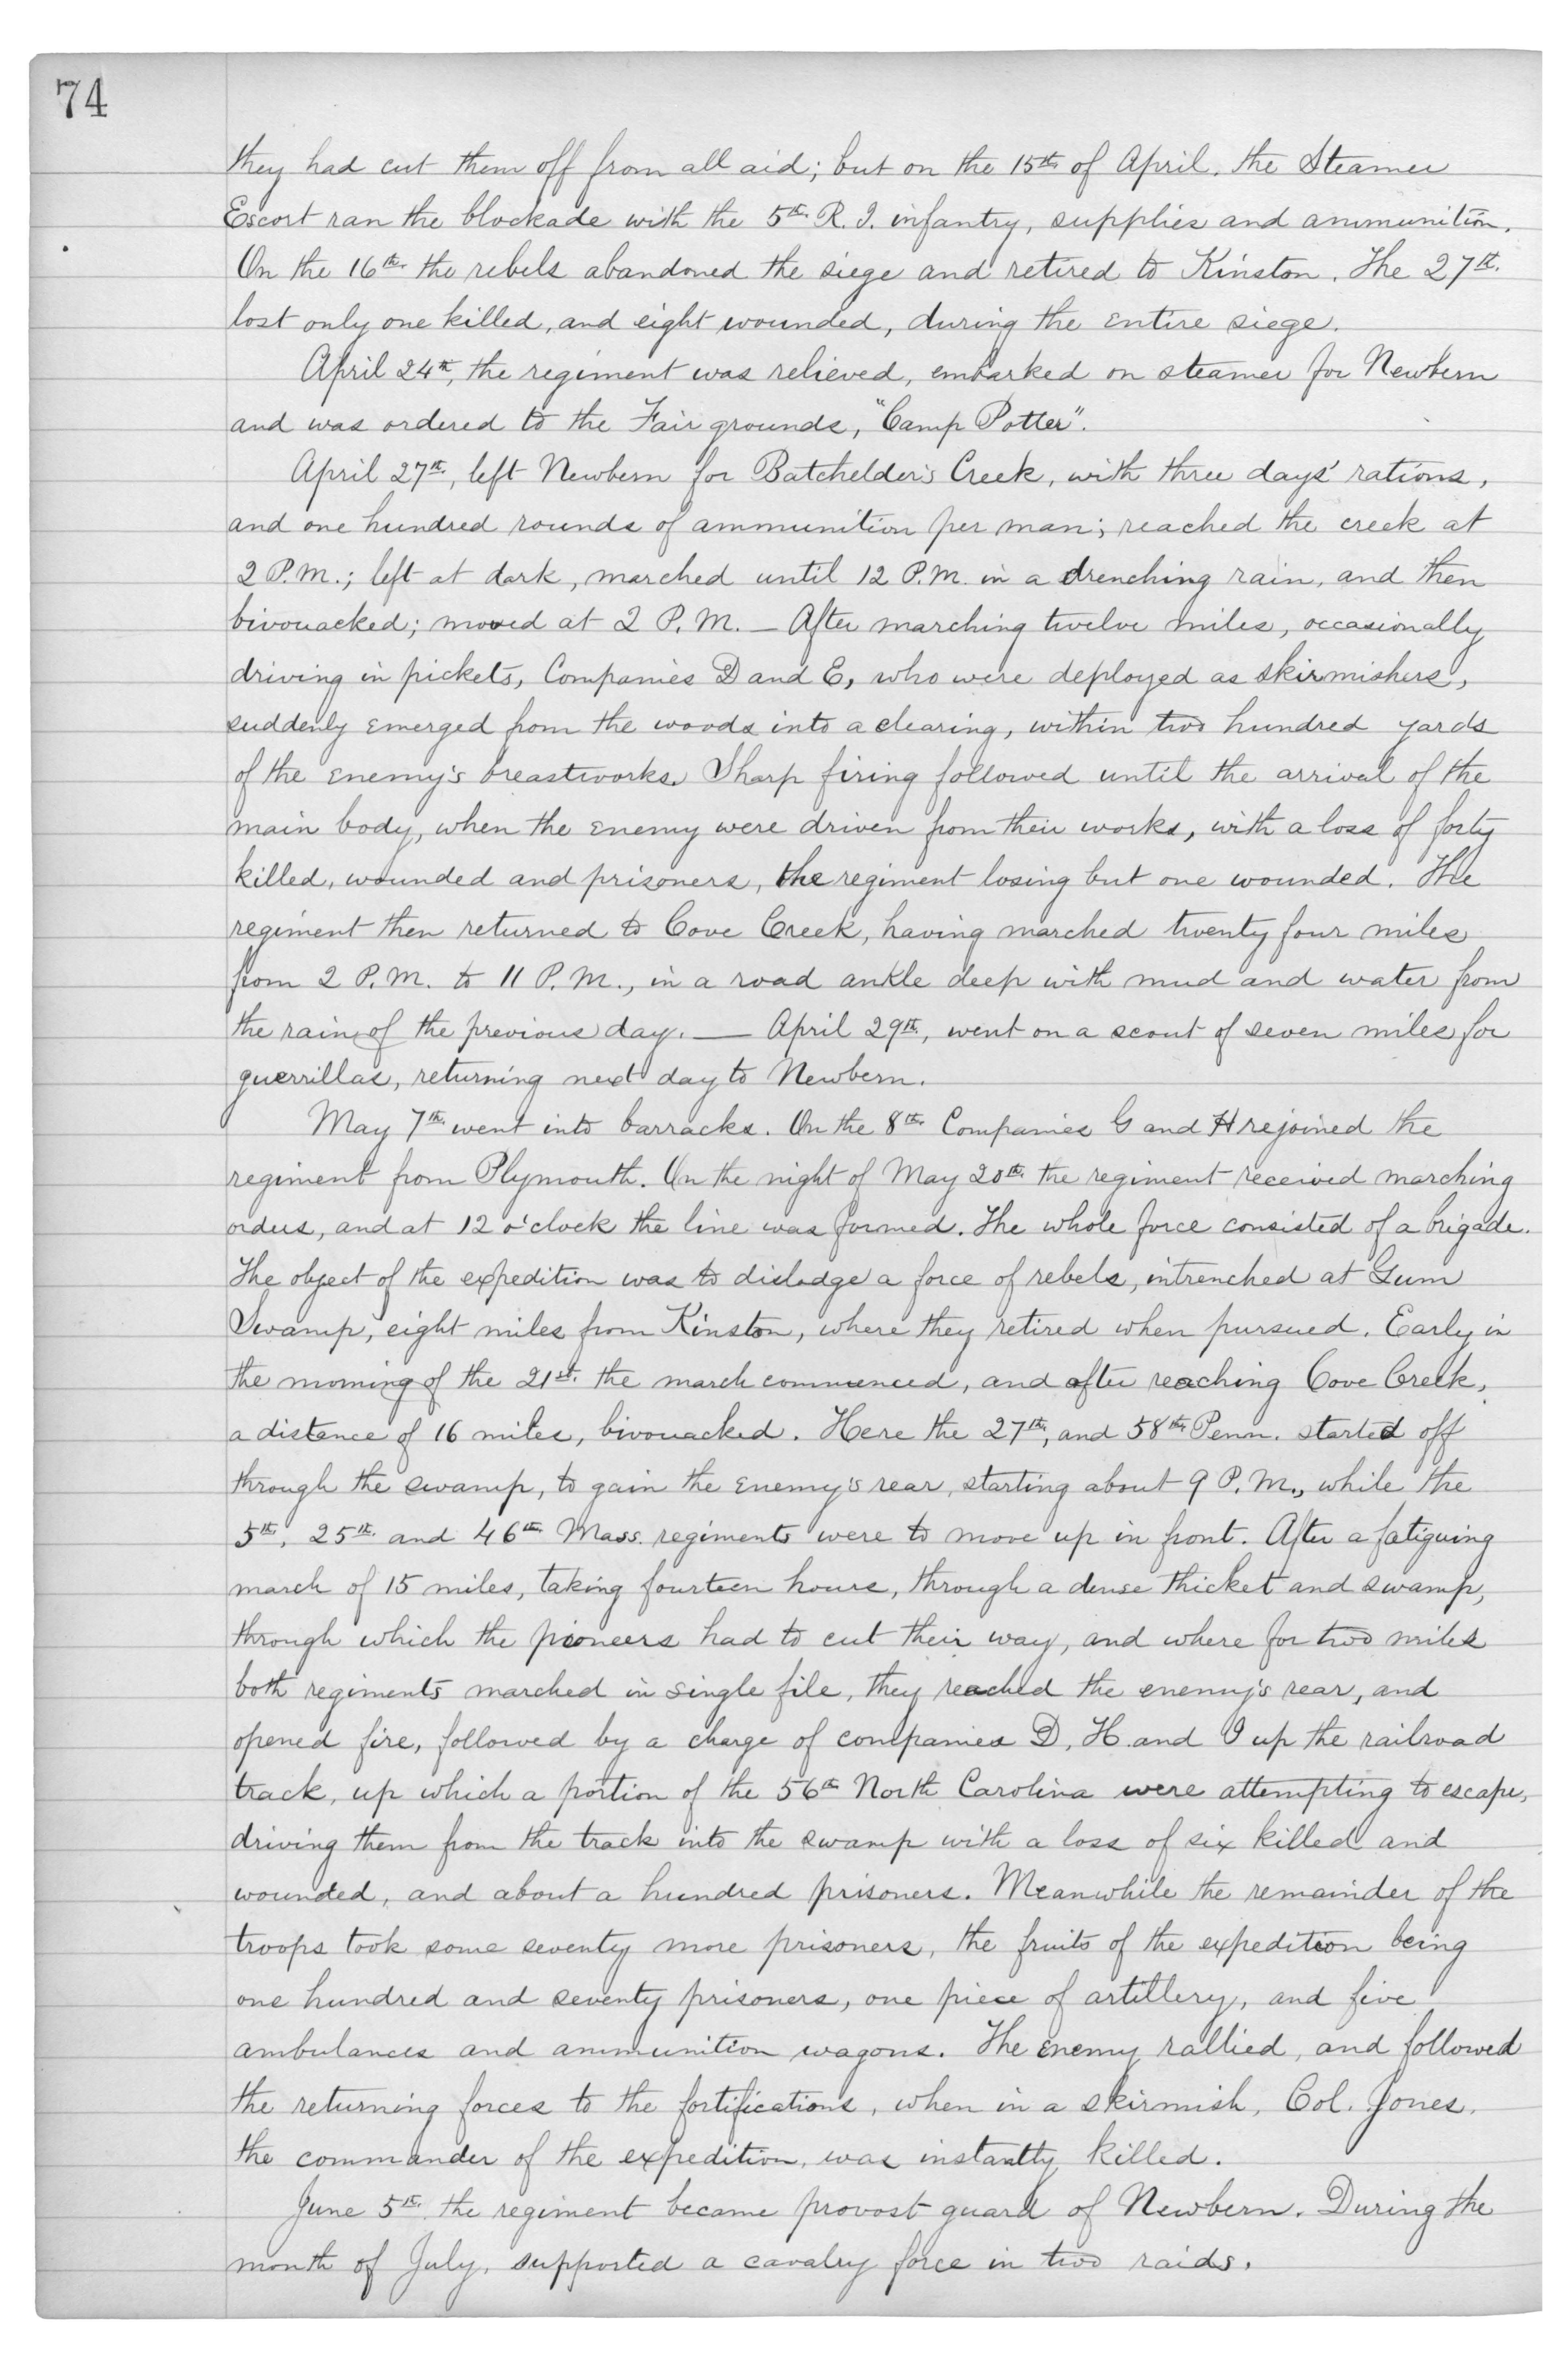 74
they had cut them off from all aid; but on the 15th of April, the Steamer
Escort ran the blockade with the 5th R. I. infantry, supplies and ammunition.
On the 16th the rebels abandoned the siege and retired to Kinston. The 27th
lost only one killed, and eight wounded, during the entire siege.
April 24th, the regiment was relieved, embarked on steamer for Newbern
and was ordered to the Fair grounds, "Camp Potter".
April 27th, left Newbern for Batchelder's Creek, with three days' rations,
and one hundred rounds of ammunition per man; reached the creek at
2 P.M.; left at dark, marched until 12 P.M. in a drenching rain, and then
bivouacked; moved at 2 P.M. — After marching twelve miles, occasionally
driving in pickets, Companies D and E, who were deployed as skirmishers,
suddenly emerged from the woods into a clearing, within two hundred yards
of the enemy's breastworks. Sharp firing followed until the arrival of the
main body, when the enemy were driven from their works, with a loss of forty
killed, wounded and prisoners, the regiment losing but one wounded. The
regiment then returned to Cove Creek, having marched twenty four miles
from 2 P.M. to 11 P.M., in a road ankle deep with mud and water from
the rain of the previous day. — April 29th, went on a scout of seven miles for
guerrillas, returning next day to Newbern.
May 7th went into barracks. On the 8th Companies G and H rejoined the
regiment from Plymouth. On the night of May 20th the regiment received marching
orders, and at 12 o'clock the line was formed. The whole force consisted of a brigade.
The object of the expedition was to dislodge a force of rebels, intrenched at Gum
Swamp, eight miles from Kinston, where they retired when pursued. Early in
the morning of the 21st the march commenced, and after reaching Cove Creek,
a distance of 16 miles, bivouacked. Here the 27th, and 58th Penn. started off
through the swamp, to gain the enemy's rear, starting about 9 P.M., while the
5th, 25th and 46th Mass. regiments were to move up in front. After a fatiguing
march of 15 miles, taking fourteen hours, through a dense thicket and swamp,
through which the pioneers had to cut their way, and where for two miles
both regiments marched in single file, they reached the enemy's rear, and
opened fire, followed by a charge of companies D, H and I up the railroad
track, up which a portion of the 56th North Carolina were attempting to escape,
driving them from the track into the swamp with a loss of six killed and
wounded, and about a hundred prisoners. Meanwhile the remainder of the
troops took some seventy more prisoners, the fruits of the expedition being
one hundred and seventy prisoners, one piece of artillery, and five
ambulances and ammunition wagons. The enemy rallied, and followed
the returning forces to the fortifications, when in a skirmish, Col. Jones,
the commander of the expedition, was instantly killed.
June 5th the regiment became provost guard of Newbern. During the
month of July, supported a cavalry force in two raids.